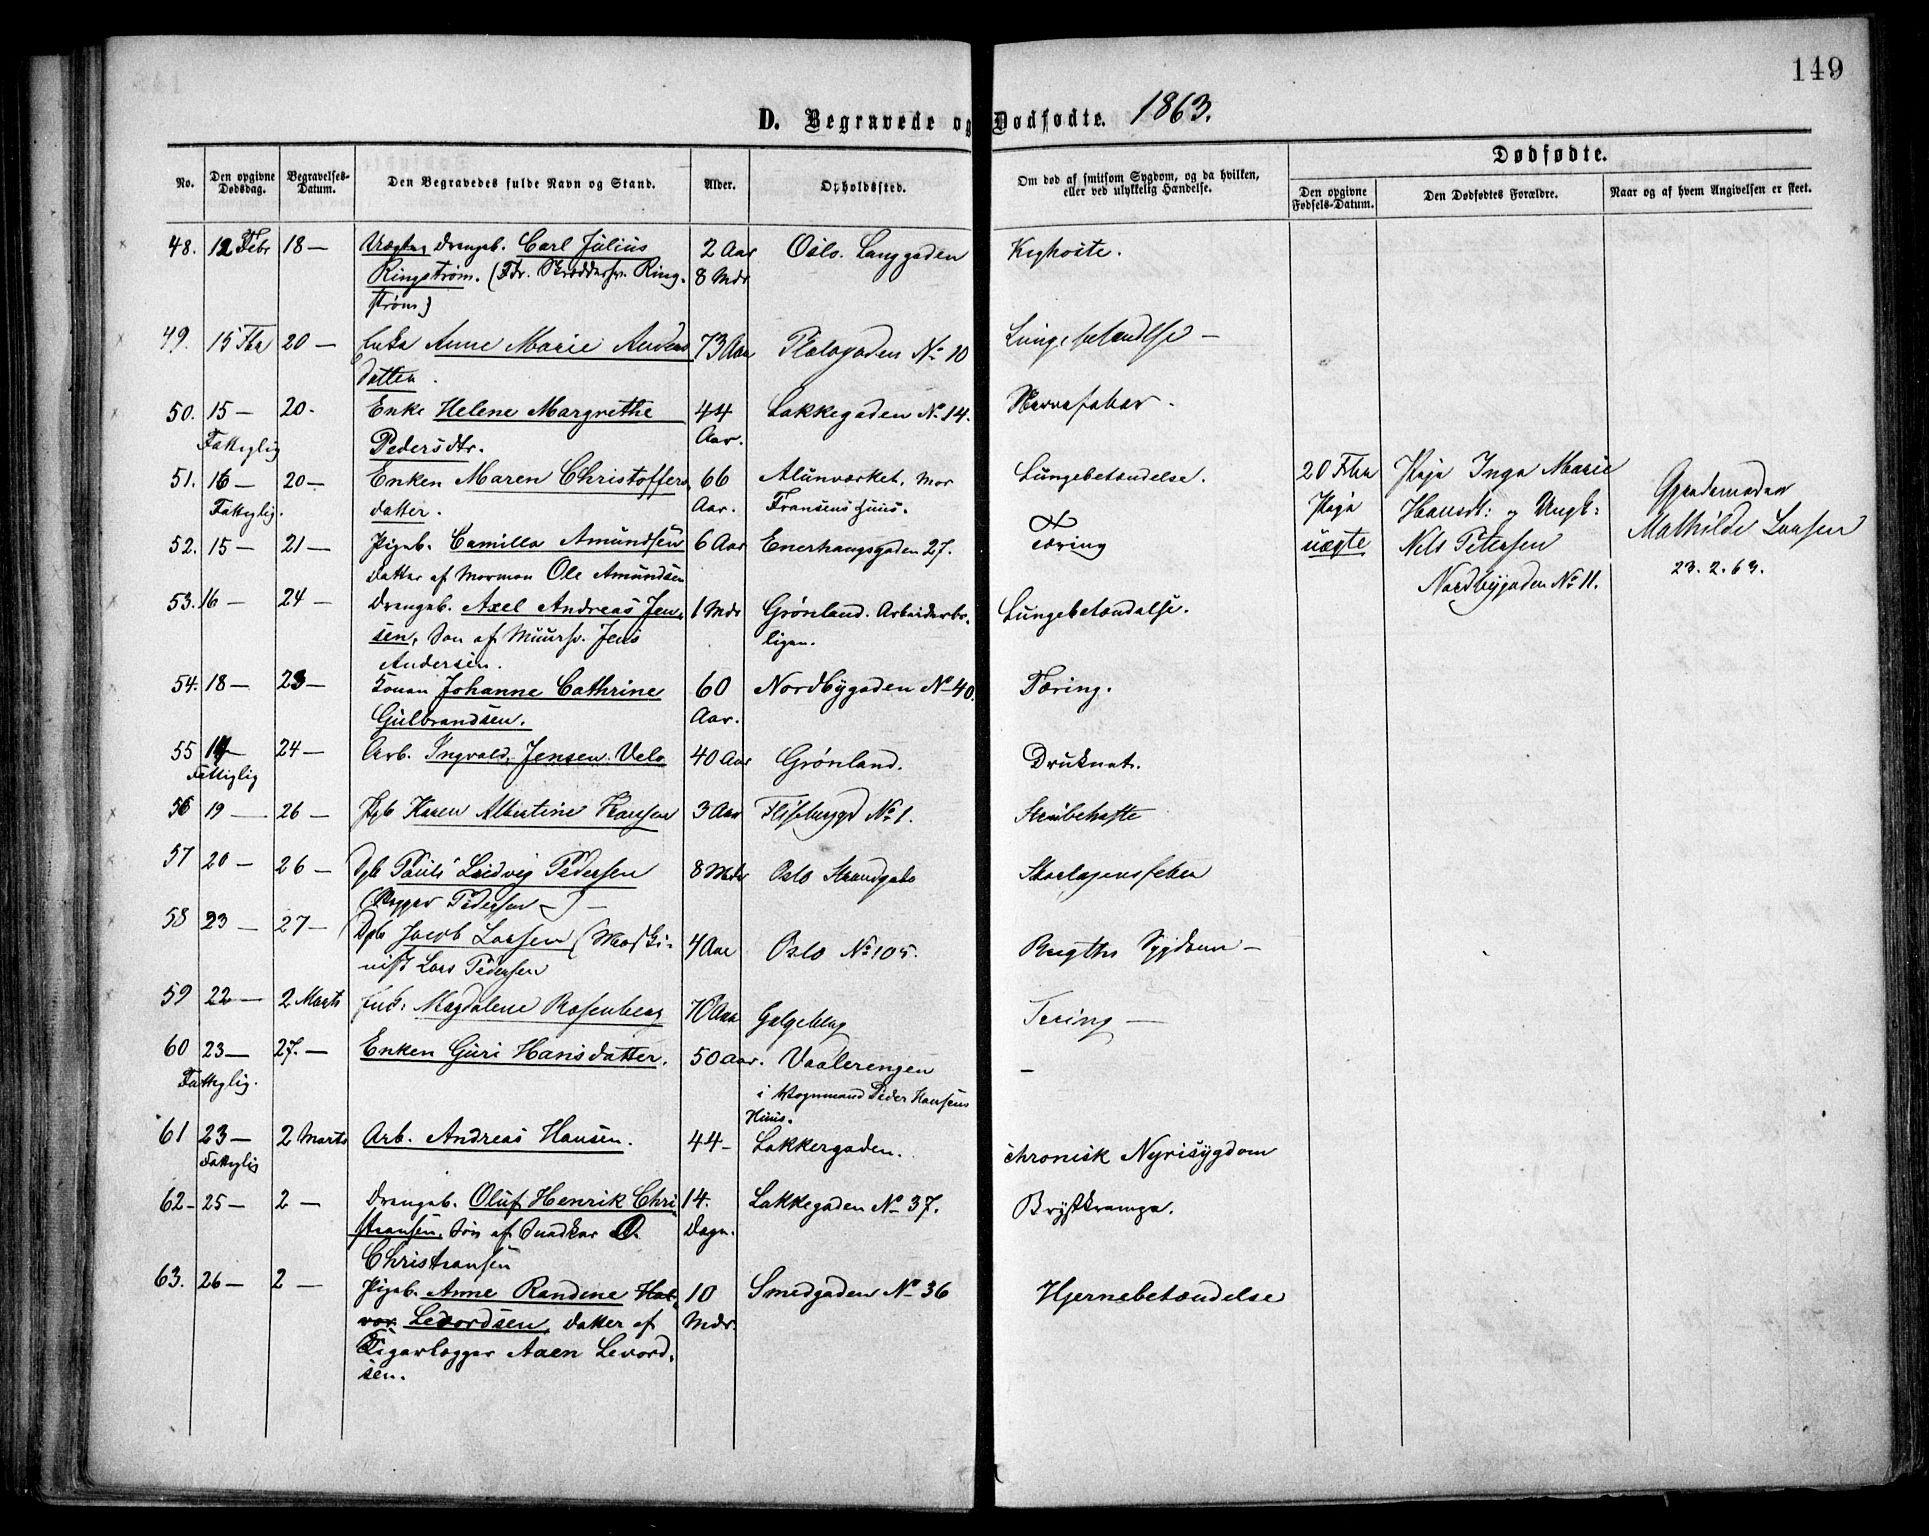 149
D. Begravede og Dødfødte. 1863.
Dødfødte.
No. Den opgivne Dødsdag. Begravelses-Datum. Den Begravedes fulde Navn og Stand. Alder. Opholdssted. Om død af smitsom Sygdom, og da hvilken, eller ved ulykkelig Hændelse. Den opgivne Fødsels-Datum. Den Dødfødtes Forældre. Naar og af hvem Angivelsen er skeet.
48. 12 Febr 18 — Uægte Drengeb. Carl Julius 2 Aar Oslo. Langgaden Kighoste.
Ringstrøm. (Fdr. Skræddersv. Ring- 8 Mdr
strøm)
49. 15 Fbr 20 — Enke Anne Marie Anders 73 Aar Platougaden No 10 Lungebetændelse —
datter.
50. 15 — 20 - Enke Helene Margrethe 44 Lakkegaden No 14. Nervefeber.
Fattiglig Pedersdtr. Aar.
51. 16 — 20 — Enken Maren Christoffers 66 Alunværket, Mor Lungebetændelse. 20 Fbr Pige Inga Marie
Fattiglig. datter. Aar. Fransens Huus. Pige Hansdt: og Ungk: Gjordemoder
52. 15 — 21 — Pigeb. Camilla Amundsen 6 Aar Enerhaugsgaden 27. Tæring uægte Nils Petersen Mathilde Larsen
datter af Mormon Ole Amundsen Nordbygaden No 11. 23. 2. 63.
53. 16 — 24 — Drengeb. Axel Andreas Jen- 1 Mdr Grønland. Arbeiderbo- Lungebetændelse.
sen, Søn af Muursv. Jens ligen.
Andersen.
54. 18 — 23 — Konen Johanne Cathrine 60 Nordbygaden No 40. Tæring.
Gulbrandsen. Aar.
55 24 — Arb. Ingvald Jensen Velo 40 Aar Grønland. Druknet.
Fattiglig
56 19 — 26 — Pgb Karen Albertine Hansen 3 Aar Flisberget No 1. Strubehoste
57 20 — 26 — Dgb Pauls Ludvig Pedersen 8 Mdr Oslo Strandgade Skarlagensfeber
( Pedersen —) —
58 23 — 27 — Dgb Jacob Larsen (Maski- 4 Aar Oslo No 105. Brigths Sygdom —
nist Lars Pedersen
59 22 — 2 Marts Enk: Magdalene Rosenberg 70 Aar Galgeberg Tæring —
60 23 — 27. — Enken Guri Hansdatter. 50 Aar. Vaalerengen —
Fattiglig. i Vognmand Peder Hansens
Huus.
61 23 — 2 Marts Arb. Andreas Hansen. 44 - Lakkergaden. chronisk Nyresygdom
Fattiglig
62 - 25 — 2 — Drengeb. Oluf Henrik Chri 14. Lakkegaden No 37. Brystkrampe.
stiansen, Søn af Snedker O. Dage.
Christiansen
63. 26 — 2 — Pigeb. Anne Randine Hal- 10 Smedgaden No 36 Hjernebetændelse
vor Levordsen, datter af Mdr.
Sigarlægger Aaen Levord-
sen.